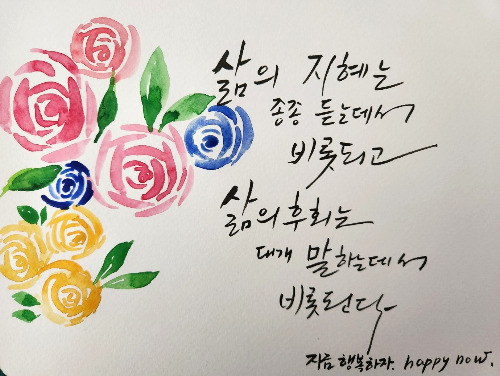 삶의 지혜는
종종 듣는데서
비롯되고
삶의 후회는
대개 말하는데서
비롯된다
지금 행복하자. happy now.